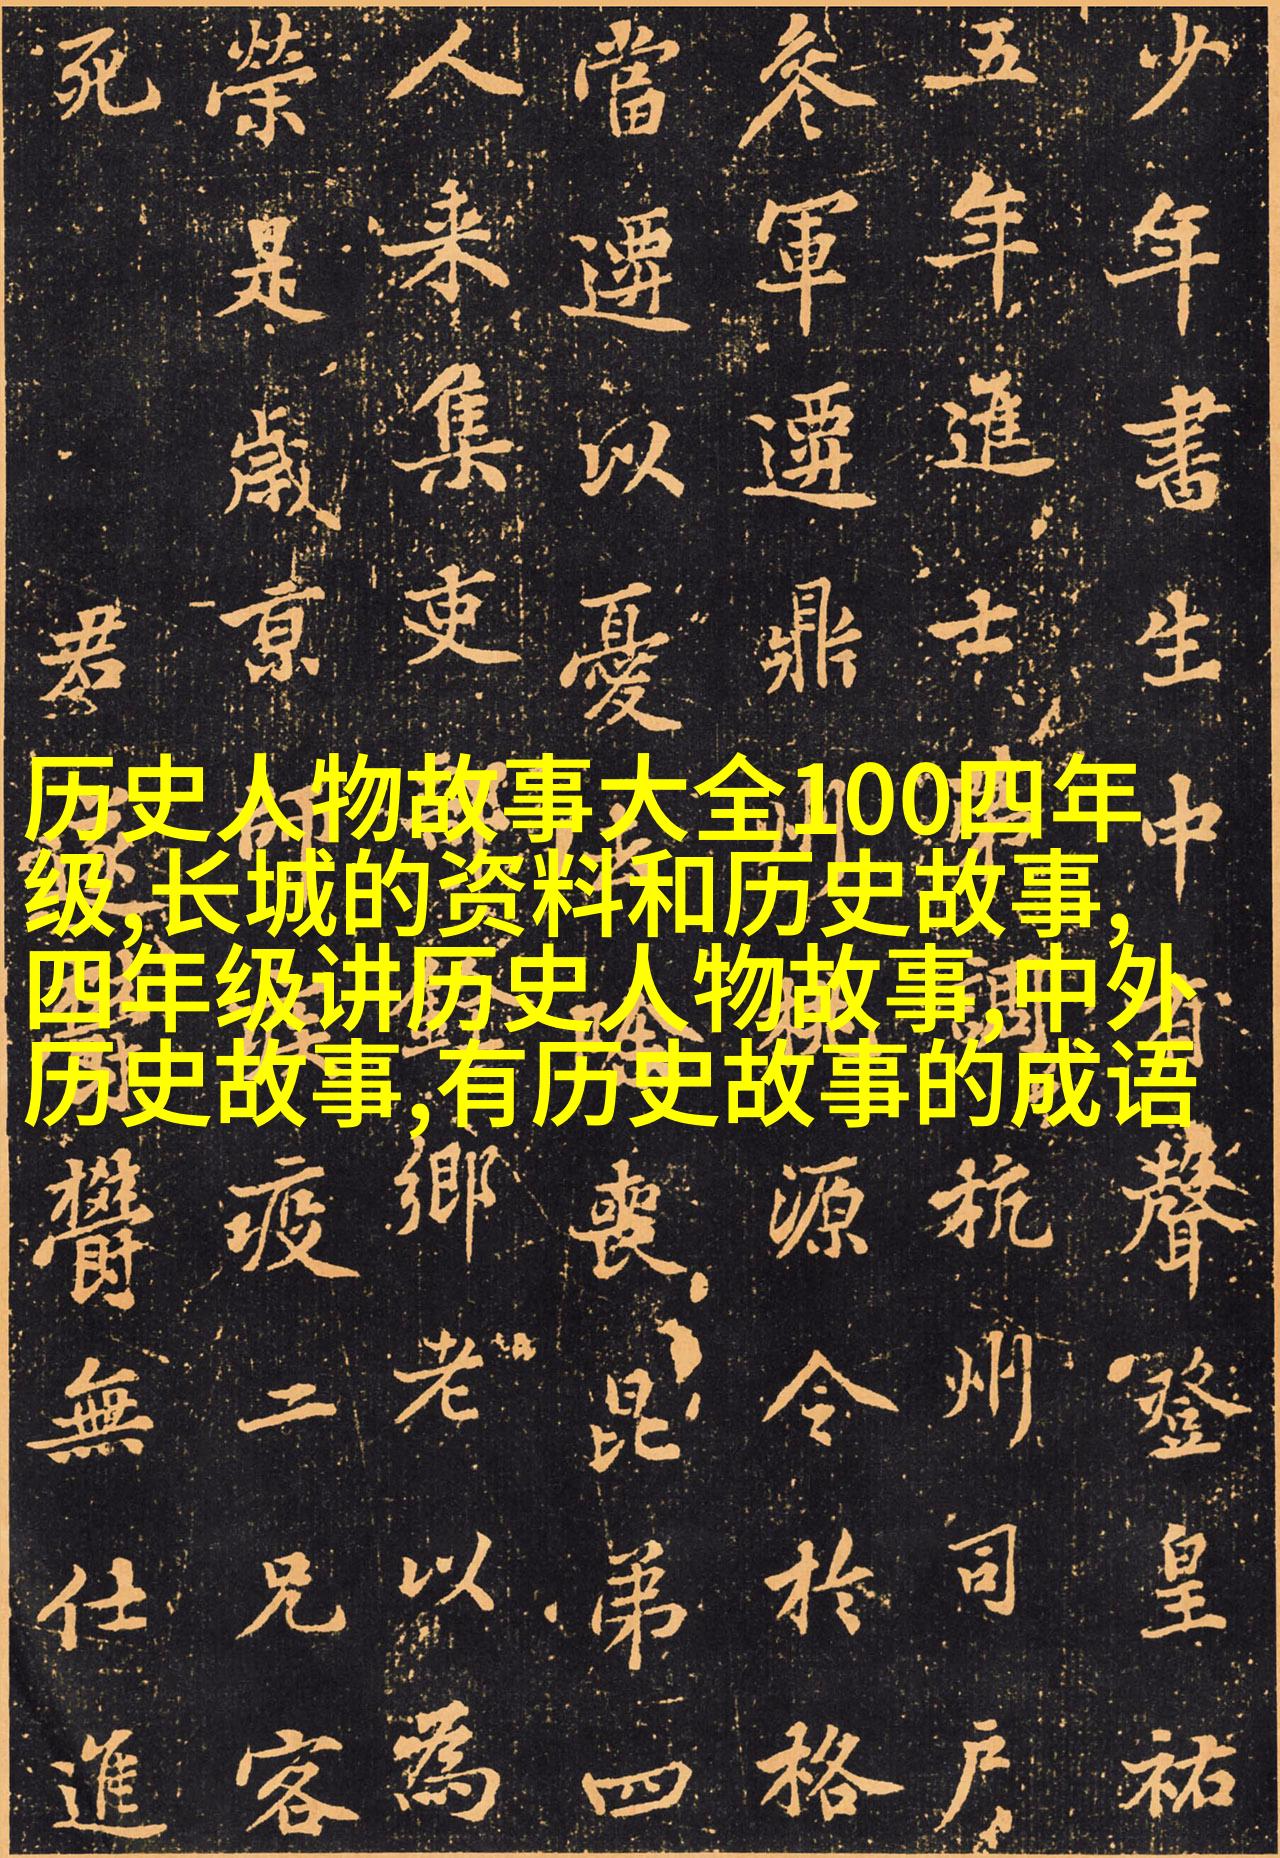 历史人物故事大全100四年
级,长城的资料和历史故事,
四年级讲历史人物故事,中外
历史故事,有历史故事的成语
少年書生中有聲登皇祐
五年進士調杭州司户
參軍遷鼎州桃源令於格
當遷以憂喪昆弟四
人来集吏鄉老以為
榮是歳京師疫二兄客
死君欝無仕進